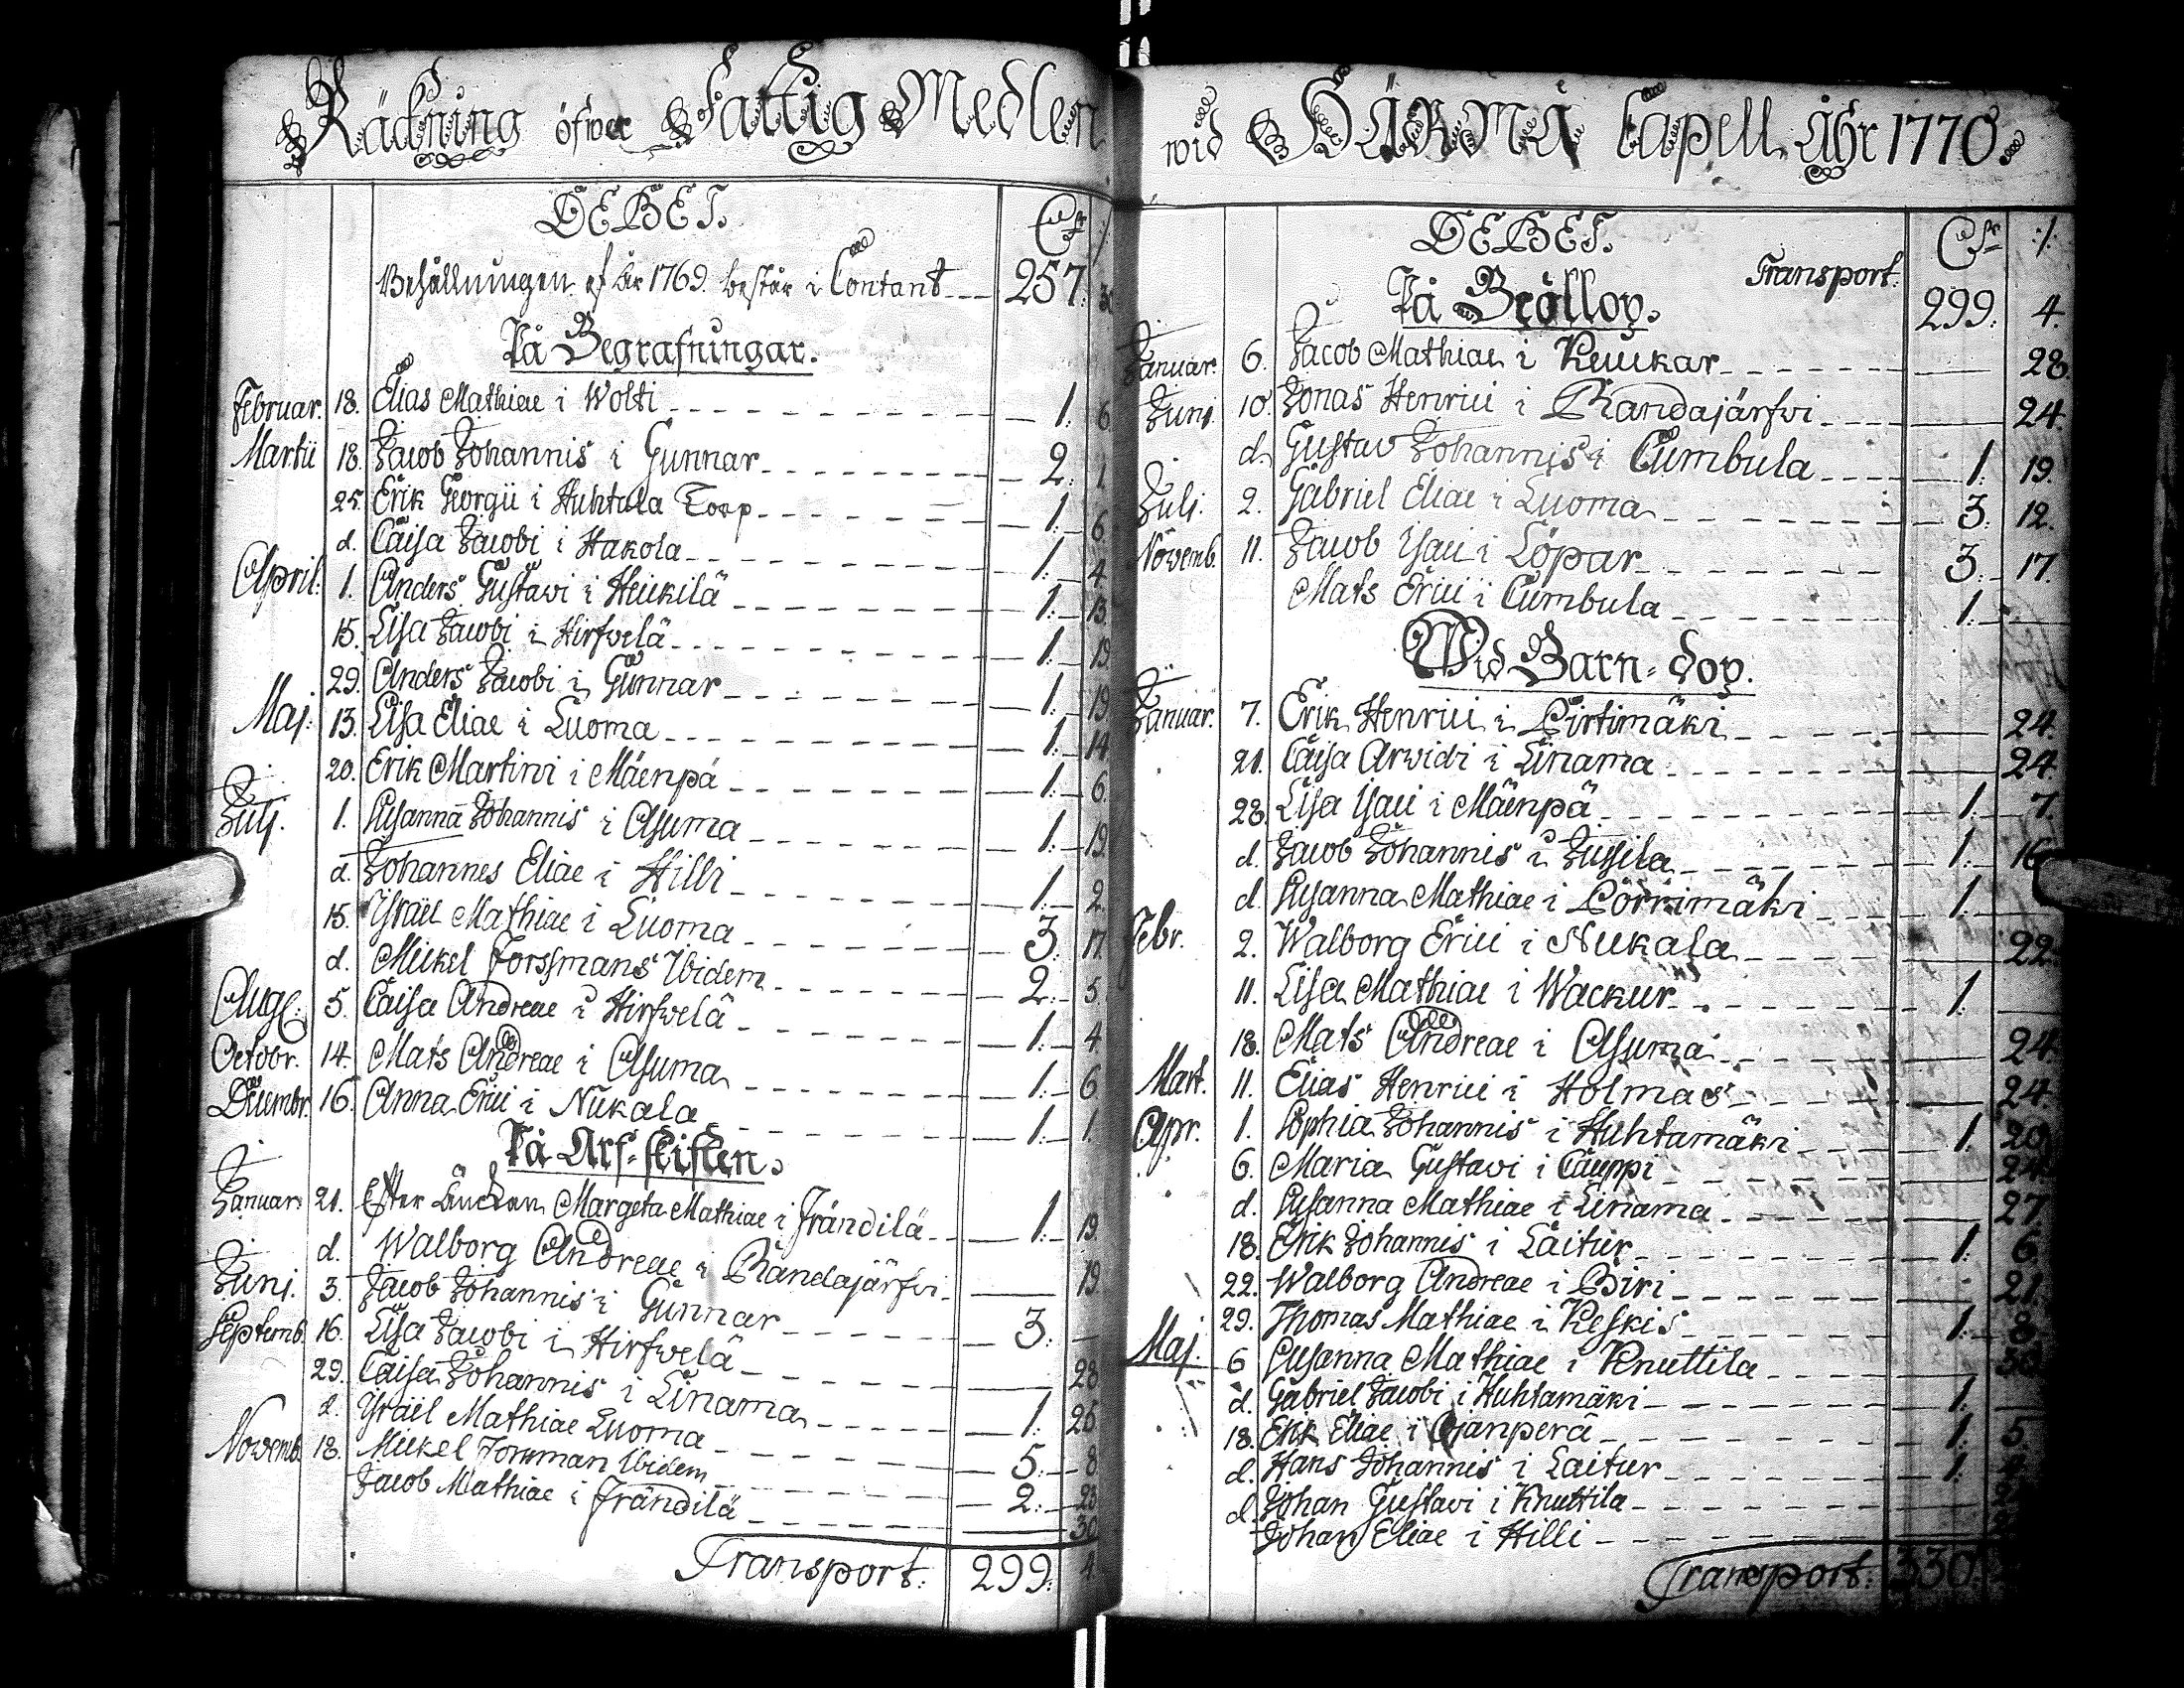 Räkning öfwer Fattig Medlen
DEBET. Cr :/:
Behållningen af År 1769 består i Contant 257:
På Begrafningar.
Februar. 18. Elias Mathiae i Wolti 1: 6.
Martii 18. Jacob Johannis i Gunnar 2: 1
25. Erik Georgii i Huhtala Torp 1: 6.
d. Caisa Jacobi i Hakola 1: 4
April: 1. Anders Gustavi i Heikilä 1: 13.
15. Lisa Jacobi i Hirfwelä 1: 19.
29. Anders Jacobi i Gunnar 1: 19.
Maj: 13. Lisa Eliae i Luoma 1: 14.
20. Erik Martini i Mäenpä 1: 6.
Julj. 1. Susanna Johannis i Asuma 1: 19.
d. Johannes Eliae i Hilli 1: 2.
15. Israël Mathiae i Luoma 3. 17.
d. Mickel Forssmans Ibidem 2: 5.
Aug: 5. Caisa Andreae i Hirfwelä 1: 4.
Octobr. 14. Mats Andreae i Asuma 1: 6
Decembr. 16. Anna Erici i Nukala 1: 1.
På Arf-skiften.
Januar: 21. Efter Enckan Margeta Mathiae i Frändilä 1: 19.
d. Walborg Andreae i Randajärfwi 19.
Junj. 3. Jacob Johannis i Gunnar 3:
Septemb. 16. Lisa Jacobi i Hirfwelä 28
29. Caisa Johannis i Linama 1: 25
d. Israël Mathiae Luoma 5: 8
Novemb. 18. Mickel Forssman Ibidem 2: 23
Jacob Mathiae i Frändilä 30
Transport: 299: 4.
wid HÄRMÄ Capell Åhr 1770.
DEBET. Cr :/:
Transport:
På Bröllop. 299: 4.
Januar: 6. Jacob Mathiae i Keuckar 28.
Junj. 10. Jonas Henrici i Randajärfwi 24.
d. Gustav Johannis i Cumbula 1: 19.
Julj. 2. Gabriel Eliae i Luoma 3: 12.
Novemb. 11. Jacob Isaci i Löpar 3: 17.
Mats Erici i Cumbula 1:
Wid Barn-dop.
Januar. 7. Erik Henrici i Pirtimäki 24.
21. Caisa Arwidi i Linama 24.
28. Lisa Isaci i Mäenpä 1: 7.
d. Jacob Johannis i Jussila 1: 16
d. Susanna Mathiae i Pörrimäki 1:
Febr. 2. Walborg Erici i Nukala 22.
11. Lisa Mathiae i Wackur 1.
18. Mats Andreae i Asuma 24.
Mart. 11. Elias Henrici i Holmas 24.
Apr. 1. Sophia Johannis i Huhtamäki 1: 20
6. Maria Gustavi i Cauppi 24
d. Susanna Mathiae i Linama 27
18. Erik Johannis i Laitur 1: 6.
22. Walborg Andreae i Piri 21.
29. Thomas Mathiae i Keskis 1: 8
Maj. 6 Susanna Mathiae i Knuttila 30
d. Gabriel Jacobi i Huhtamäki 1:
18. Erik Eliae i Ojanperä 1: 5.
d. Hans Johannis i Laitur 1:
d. Johan Gustavi i Knuttila
Johan Eliae i Hilli
Transport: 330: